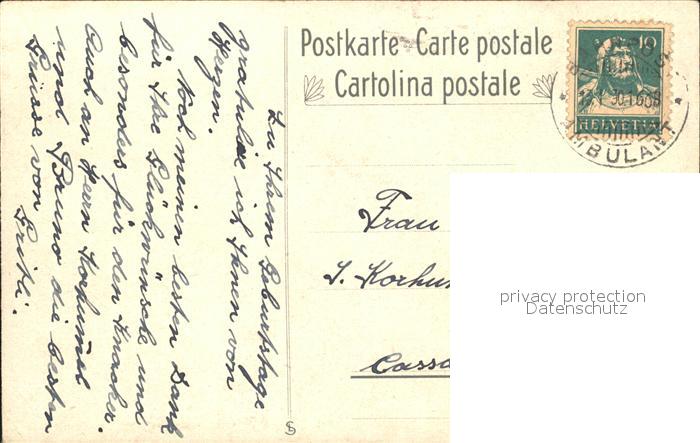 Postkarte - Carte postale
Cartolina postale
10
HELVETIA
AMBULANT
Zu Ihrem Geburtstage
gratuliere ich Ihnen von
Herzen.
Noch meinen besten Dank
für Ihre Glückwünsche und
besonders für den Knacker.
Auch an Herrn Korhumel
und Bruno die besten
Grüsse von
Frida.
Frau
S. Korhu
Cassa
privacy protection
Datenschutz